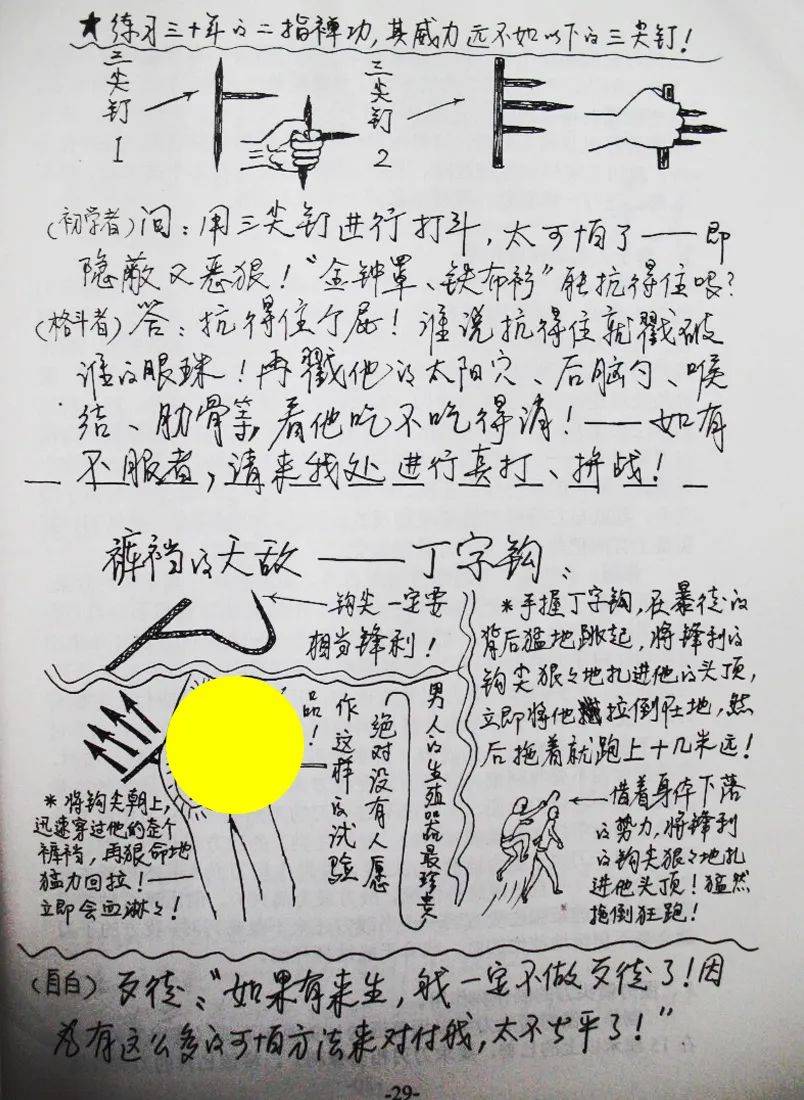 ★练习三十年的二指禅功,其威力远不如以下的三尖钉!
三尖钉1
三尖钉2
(初学者)问:用三尖钉进行打斗,太可怕了——即
隐蔽又恶狠!“金钟罩、铁布衫”能抗得住吗?
(格斗者)答:抗得住个屁!谁说抗得住就戳破
谁的眼珠!再戳他的太阳穴、后脑勺、喉
结、肋骨等,看他吃不吃得消!——如有
不服者,请来我处进行真打、拼战!
裤裆的天敌——丁字钩:
钩尖一定要
相当锋利!
*手握丁字钩,在暴徒的
背后猛地跳起,将锋利的
钩尖狠々地扎进他的头顶,
立即将他拉倒在地,然
后拖着就跑上十几米远!
男人的生殖器最珍贵
绝对没有人愿
作这样的试验
品!
*将钩尖朝上,
迅速穿过他的整个
裤裆,再狠命地
猛力回拉!——
立即会血淋々!
借着身体下落
的势力,将锋利
的钩尖狠々地扎
进他头顶!猛然
拖倒狂跑!
(自白)歹徒:“如果有来生,我一定不做歹徒了!因
为有这么多的可怕方法来对付我,太不公平了!”
-29-